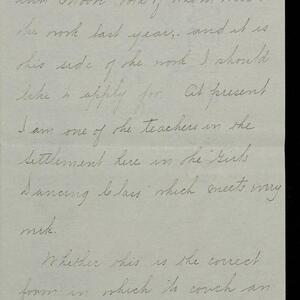 the work last year, and it is
this side of the work I should
like to apply for. At present
I am one of the teachers in the
Settlement here in the Girls
Dancing Class which meets every
week.
Whether this is the correct
form in which to couch an